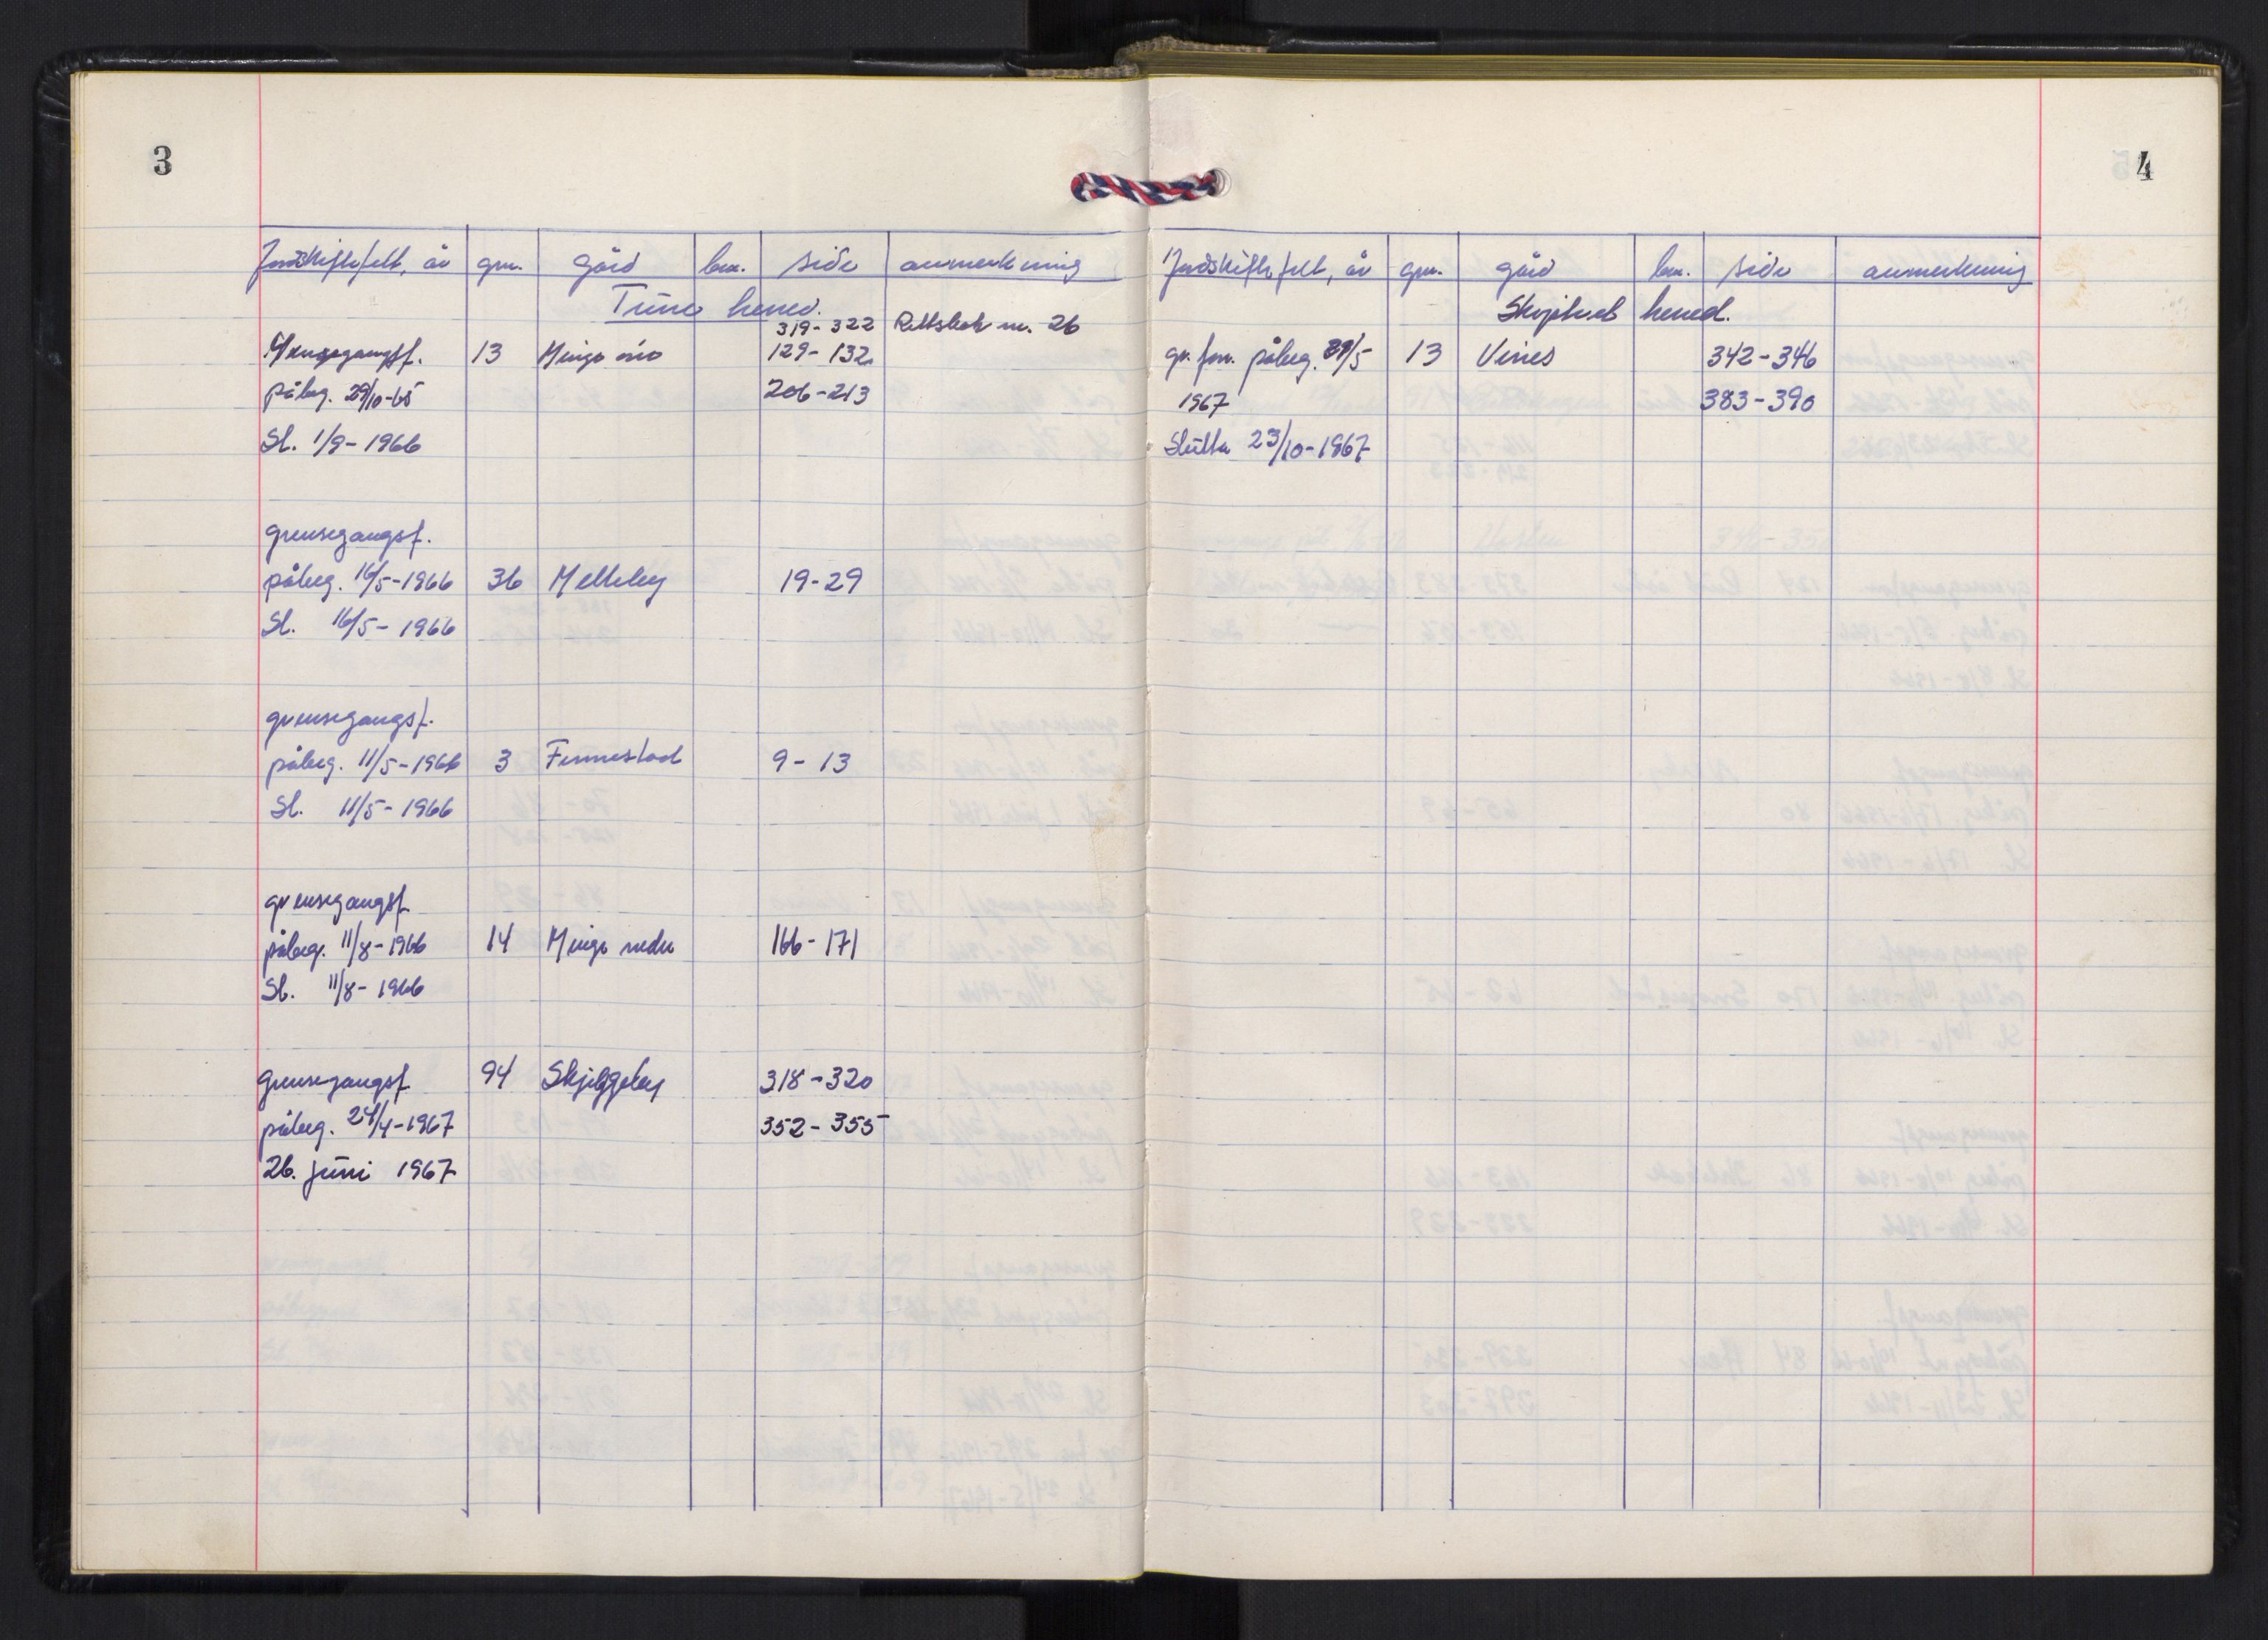 3
Jordskiftefelt, år gnr. gård bnr. side anmerkning
Tune herred.
319-322 Rettsbok nr. 26
Grensegangsf. 13 Minge 129-132
påbeg. 29/10-65 206-213
Sl. 1/9-1966
grensegangsf.
påbeg. 16/5-1966 36 Melleby 19-29
Sl. 16/5-1966
grensegangsf.
påbeg. 11/5-1966 3 Finnestad 9-13
Sl. 11/5-1966
grensegangsf
påbeg. 11/8-1966 14 Minge nedre 166-171
Sl. 11/8-1966
grensegangsf 94 Skjeggeby 318-320
påbeg. 24/4-1967 352-355
26. juni 1967
4
Jordskiftefelt, år gnr. gård bnr. side anmerkning
Skjeberg herred.
gr. forr. påbeg. /5 13 Vines 342-346
1967 383-390
Slutta 23/10-1967